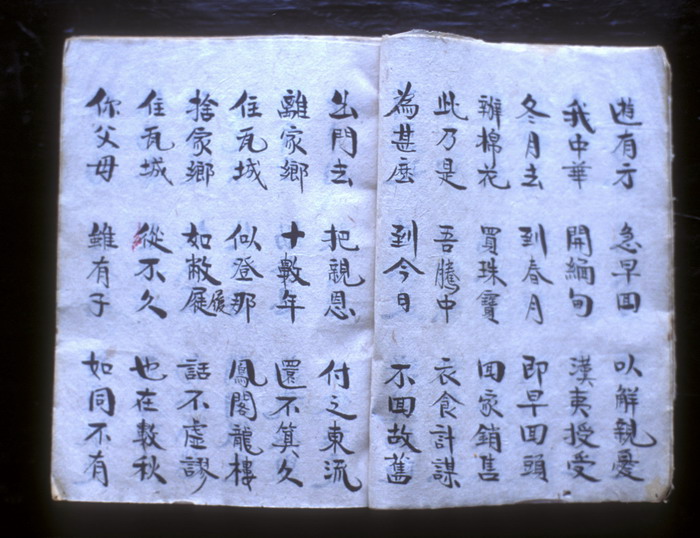 遊有方 急早回 以解親憂
我中華 開緬甸 漢夷授受
冬月去 到春月 即早回頭
辦棉花 買珠寶 回家銷售
此乃是 吾騰中 衣食計謀
為甚麽 到今日 不回故舊
出門去 把親恩 付之東流
離家鄉 十數年 還不算久
住瓦城 似登那 鳳閣龍樓
捨家鄉 如敝屣 話不虛謬
住瓦城 從不久 也在數秋
你父母 雖有子 如同不有